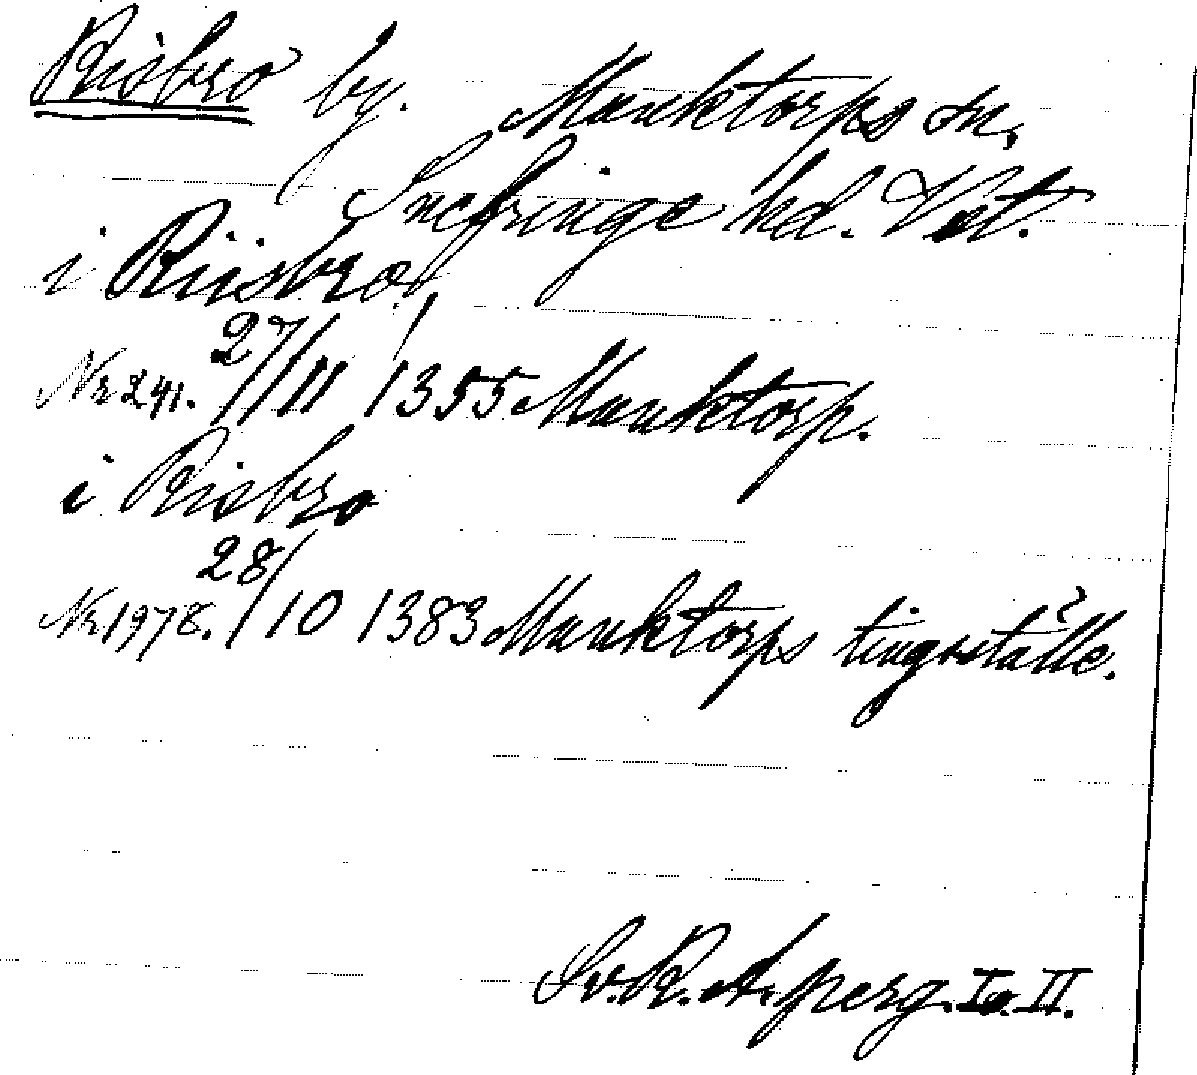 Risbro by. Munktorps sn,
Snefringe hd. Vst.
i Riisbro
Nr 241. 27/11 1355 Munktorp.
i Risbro
Nr 1978. 28/10 1383 Munktorps tingställe.
Sv. R. A. perg. I o. II.